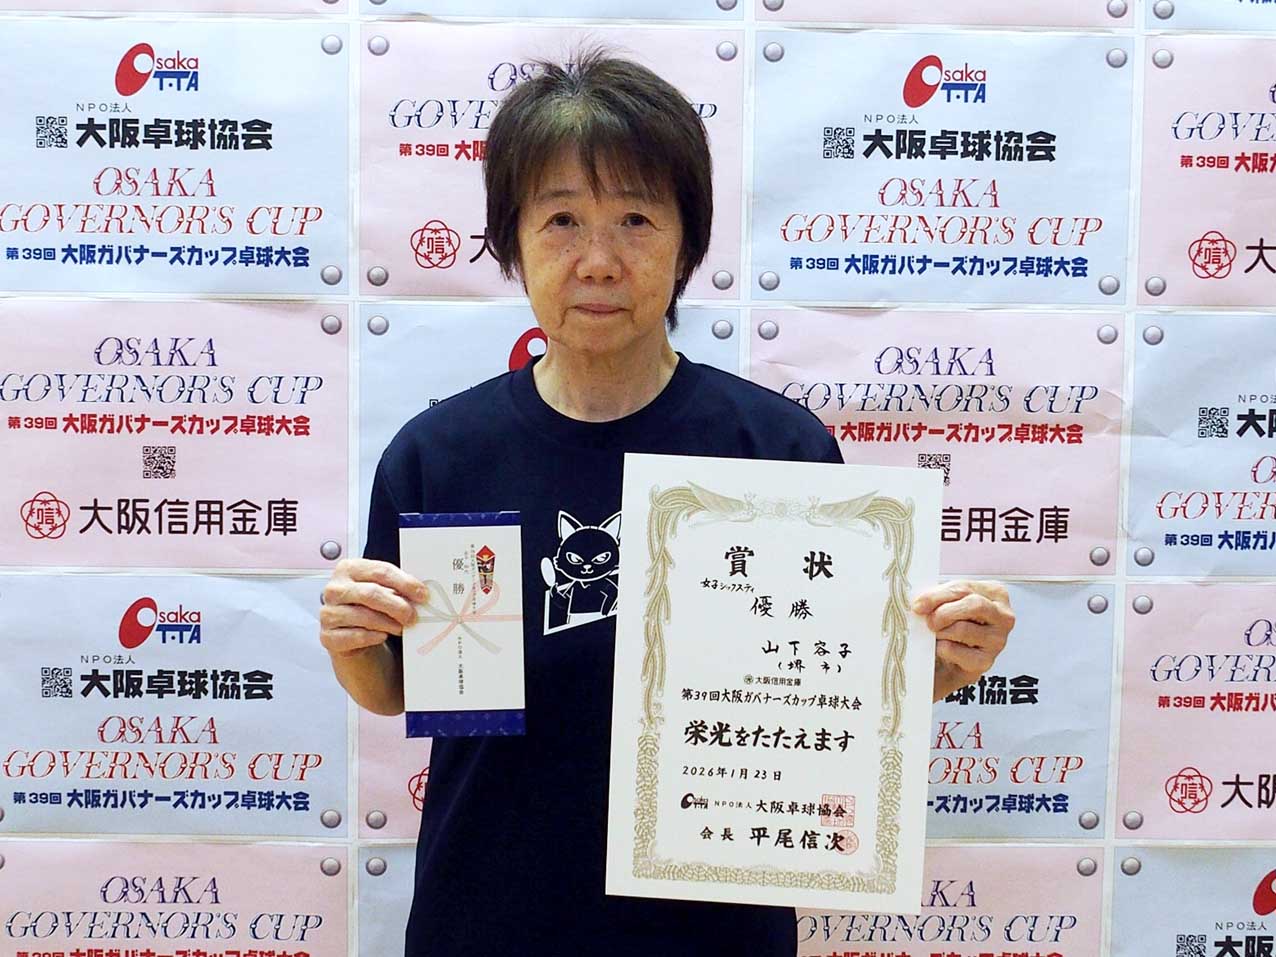 Osaka
T・TA
NPO法人
大阪卓球協会
OSAKA
GOVERNOR'S CUP
第39回 大阪ガバナーズカップ卓球大会
OSAKA
GOVERNOR'S CUP
第39回 大阪ガバナーズカップ卓球大会
大阪信用金庫
Osaka
T・TA
NPO法人
大阪卓球協会
OSAKA
GOVERNOR'S CUP
第39回 大阪ガバナーズカップ卓球大会
OSAKA
GOVERNOR'S CUP
第39回
Osaka
T・TA
NPO法人
大阪卓球協会
OSAKA
GOVERNOR'S CUP
第39回 大阪ガバナーズカップ卓球大会
OSAKA
GOVERNOR'S CUP
大阪ガバナーズカップ卓球大会
信用金庫
優勝
NPO法人 大阪卓球協会
賞状
女子シックスティ
優勝
山下容子
(堺市)
大阪信用金庫
第39回大阪ガバナーズカップ卓球大会
栄光をたたえます
2026年1月23日
NPO法人 大阪卓球協会
会長 平尾信次
OSAKA
GOVERNOR'S CUP
第39回 大阪ガバナーズカップ卓球大会